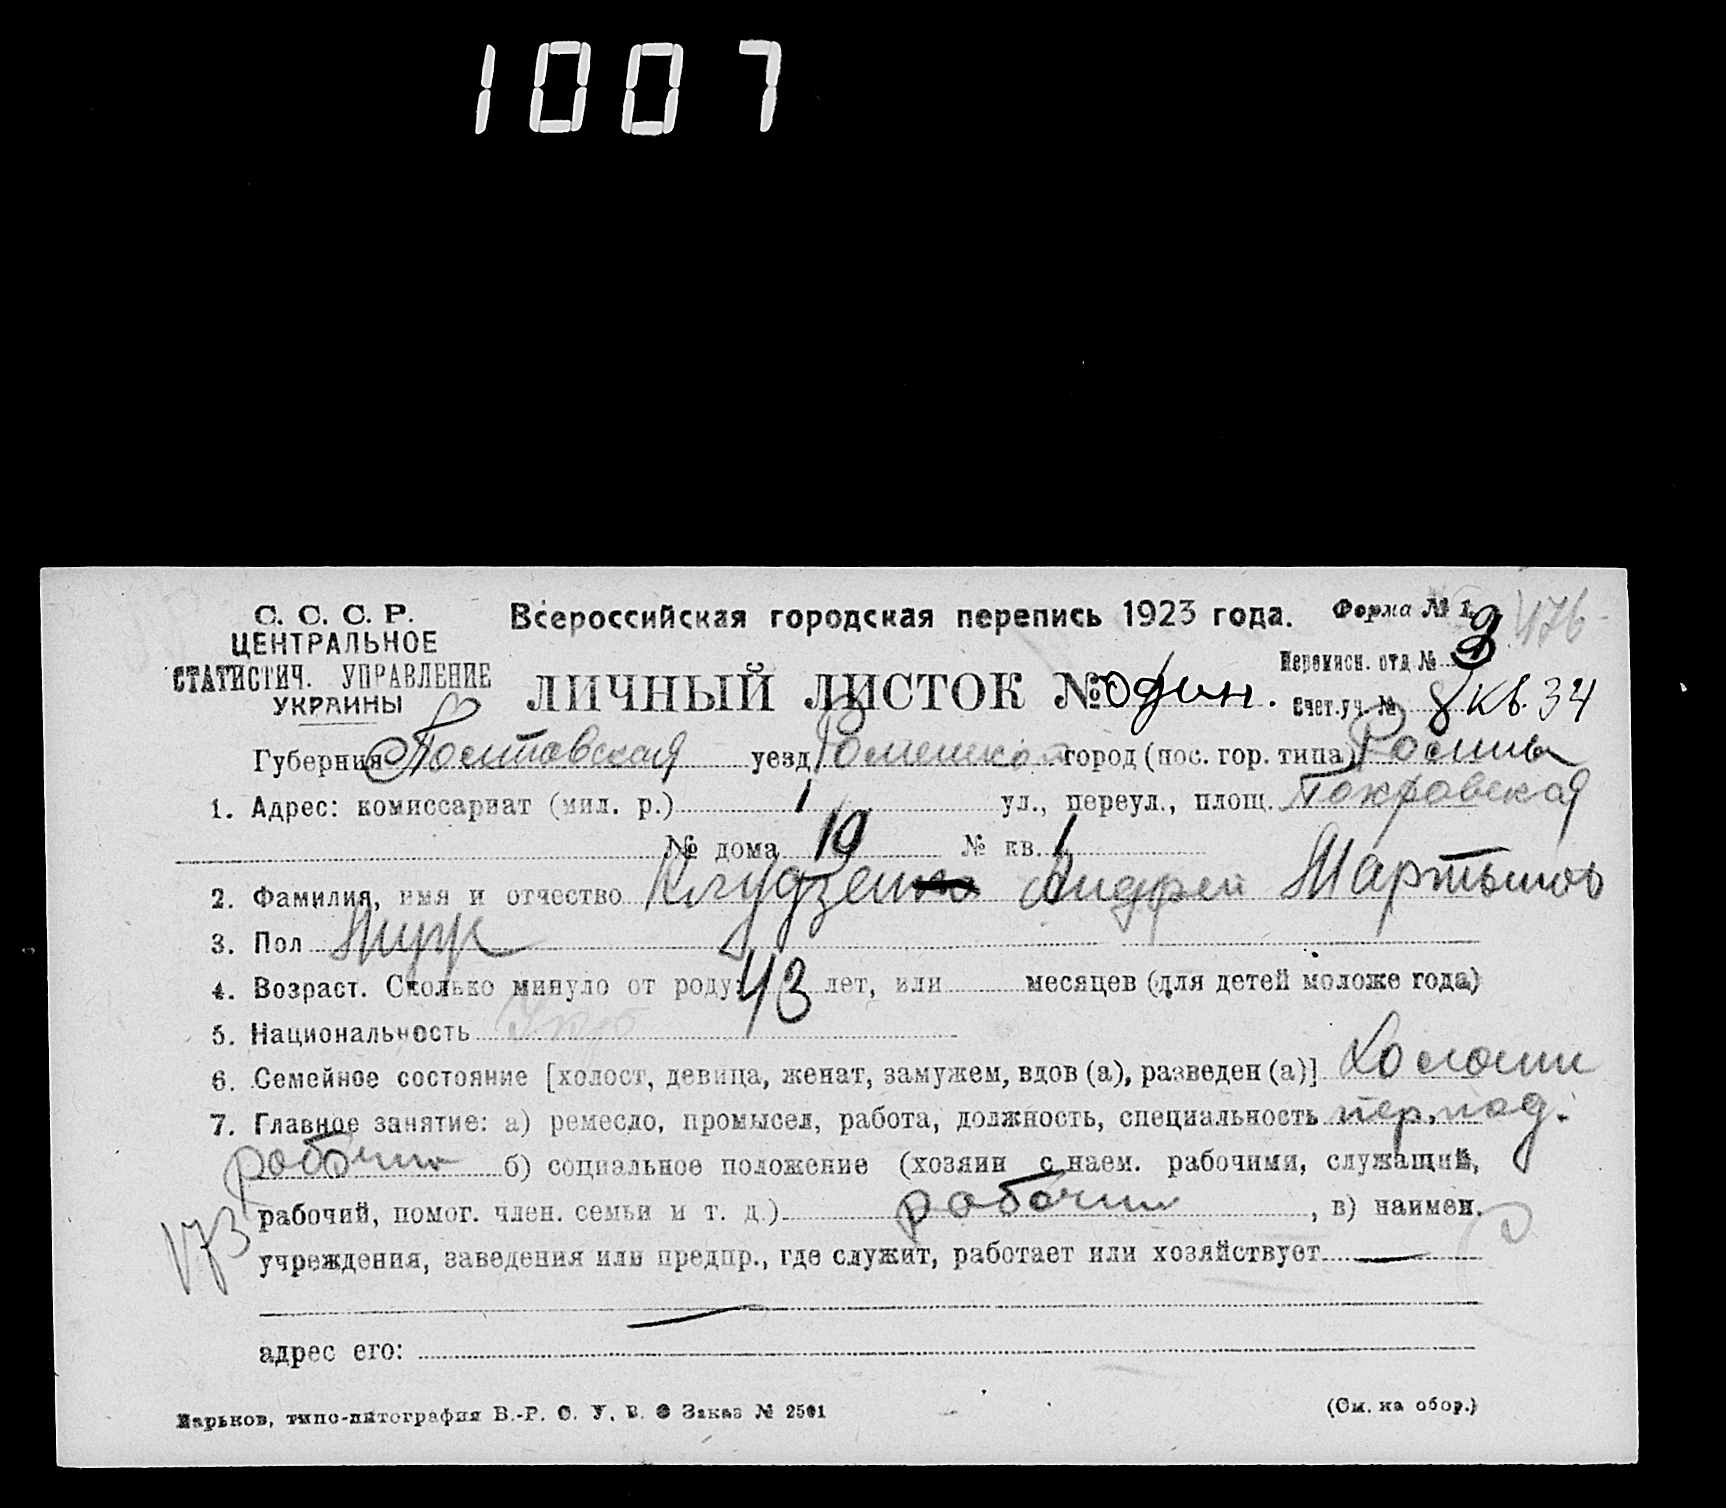 1007
С. С. С. Р.
ЦЕНТРАЛЬНОЕ
СТАТИСТИЧ. УПРАВЛЕНИЕ
УКРАИНЫ
Всероссийская городская перепись 1923 года.
Форма № 1.
476
ЛИЧНЫЙ ЛИСТОК № один.
Переписн. отд. № 3
Счет. уч. № 8 кв. 34
Губерния Полтавская уезд Роменский город (пос. гор. типа) Ромны
1. Адрес: комиссариат (мил. р.) 1 ул., переул., площ. Покровская
№ дома 19 № кв. 1
2. Фамилия, имя и отчество Андрей Мартынов
3. Пол Муж
4. Возраст. Сколько минуло от роду: 43 лет, или месяцев (для детей моложе года)
5. Национальность Укр
6. Семейное состояние [холост, девица, женат, замужем, вдов (а), разведен (а)] Холост
7. Главное занятие: а) ремесло, промысел, работа, должность, специальность
рабочий б) социальное положение (хозяин с наем. рабочими, служащий,
рабочий, помог. член. семьи и т. д.) рабочий, в) наимен.
173
учреждения, заведения или предпр., где служит, работает или хозяйствует —
—
адрес его:
Харьков, типо-литография В.-Р. С. У. В. О Заказ № 2501
(См. на обор.)